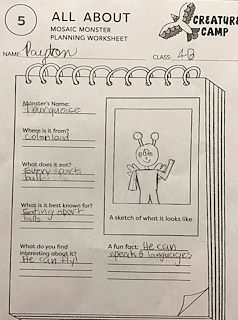 5
ALL ABOUT
MOSAIC MONSTER
PLANNING WORKSHEET
CREATURE
CAMP
NAME: Payton
CLASS: 4B
Monster's Name:
Turquoise
Where is it from?
Colorland
What does it eat?
Every sport
balls
What is it best known for?
Eating sport
balls
What do you find
interesting about it?
He can fly!
A sketch of what it looks like
A fun fact: He can
speak 8 languages